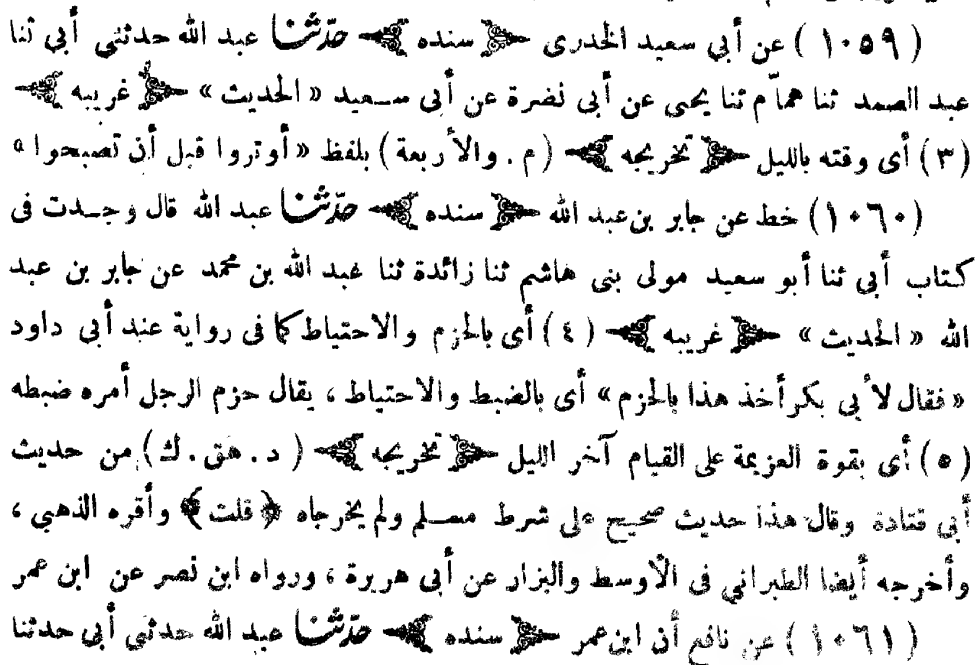 ( ١٠٥٩ ) عن أبي سعيد الخدرى سنده حدّثنا عبد الله حدثنى أبي ثنا
عبد الصمد ثنا همّام ثنا يحيى عن أبى نضرة عن أبى سعيد « الحديث » غريبه
(٣) أى وقته بالليل تخريجه (م . والأربعة) بلفظ «أوتروا قبل أن تصبحوا»
(١٠٦٠) خط عن جابر بن عبد الله سنده حدّثنا عبد الله قال وجدت فى
كتاب أبي ثنا أبو سعيد مولى بنى هاشم ثنا زائدة ثنا عبد الله بن محمد عن جابر بن عبد
الله « الحديث » غريبه (٤) أى بالحزم والاحتياط كما فى رواية عند أبى داود
«فقال لأبى بكر أخذ هذا بالحزم» أى بالضبط والاحتياط ، يقال حزم الرجل أمره ضبطه
(٥) أى بقوة العزيمة على القيام آخر الليل تخريجه ( د . هق . ك) من حديث
أبى قتادة وقال هذا حديث صحيح على شرط مسلم ولم يخرجاه ﴿قلت﴾ وأقره الذهبي ،
وأخرجه أيضا الطبرانى فى الأوسط والبزار عن أبى هريرة ، ورواه ابن نصر عن ابن عمر
( ١٠٦١ ) عن نافع أن ابن عمر سنده حدّثنا عبد الله حدثنى أبى حدثنا